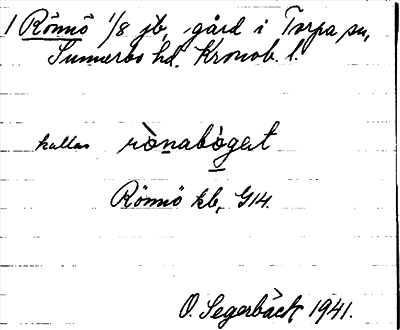 1 Rönnö 1/8 jb, gård i Torpa sn,
Sunnerbo hd. Kronob. l.
kallas rònabòget
Rönnö kb, G14.
O. Segerbäck 1941.